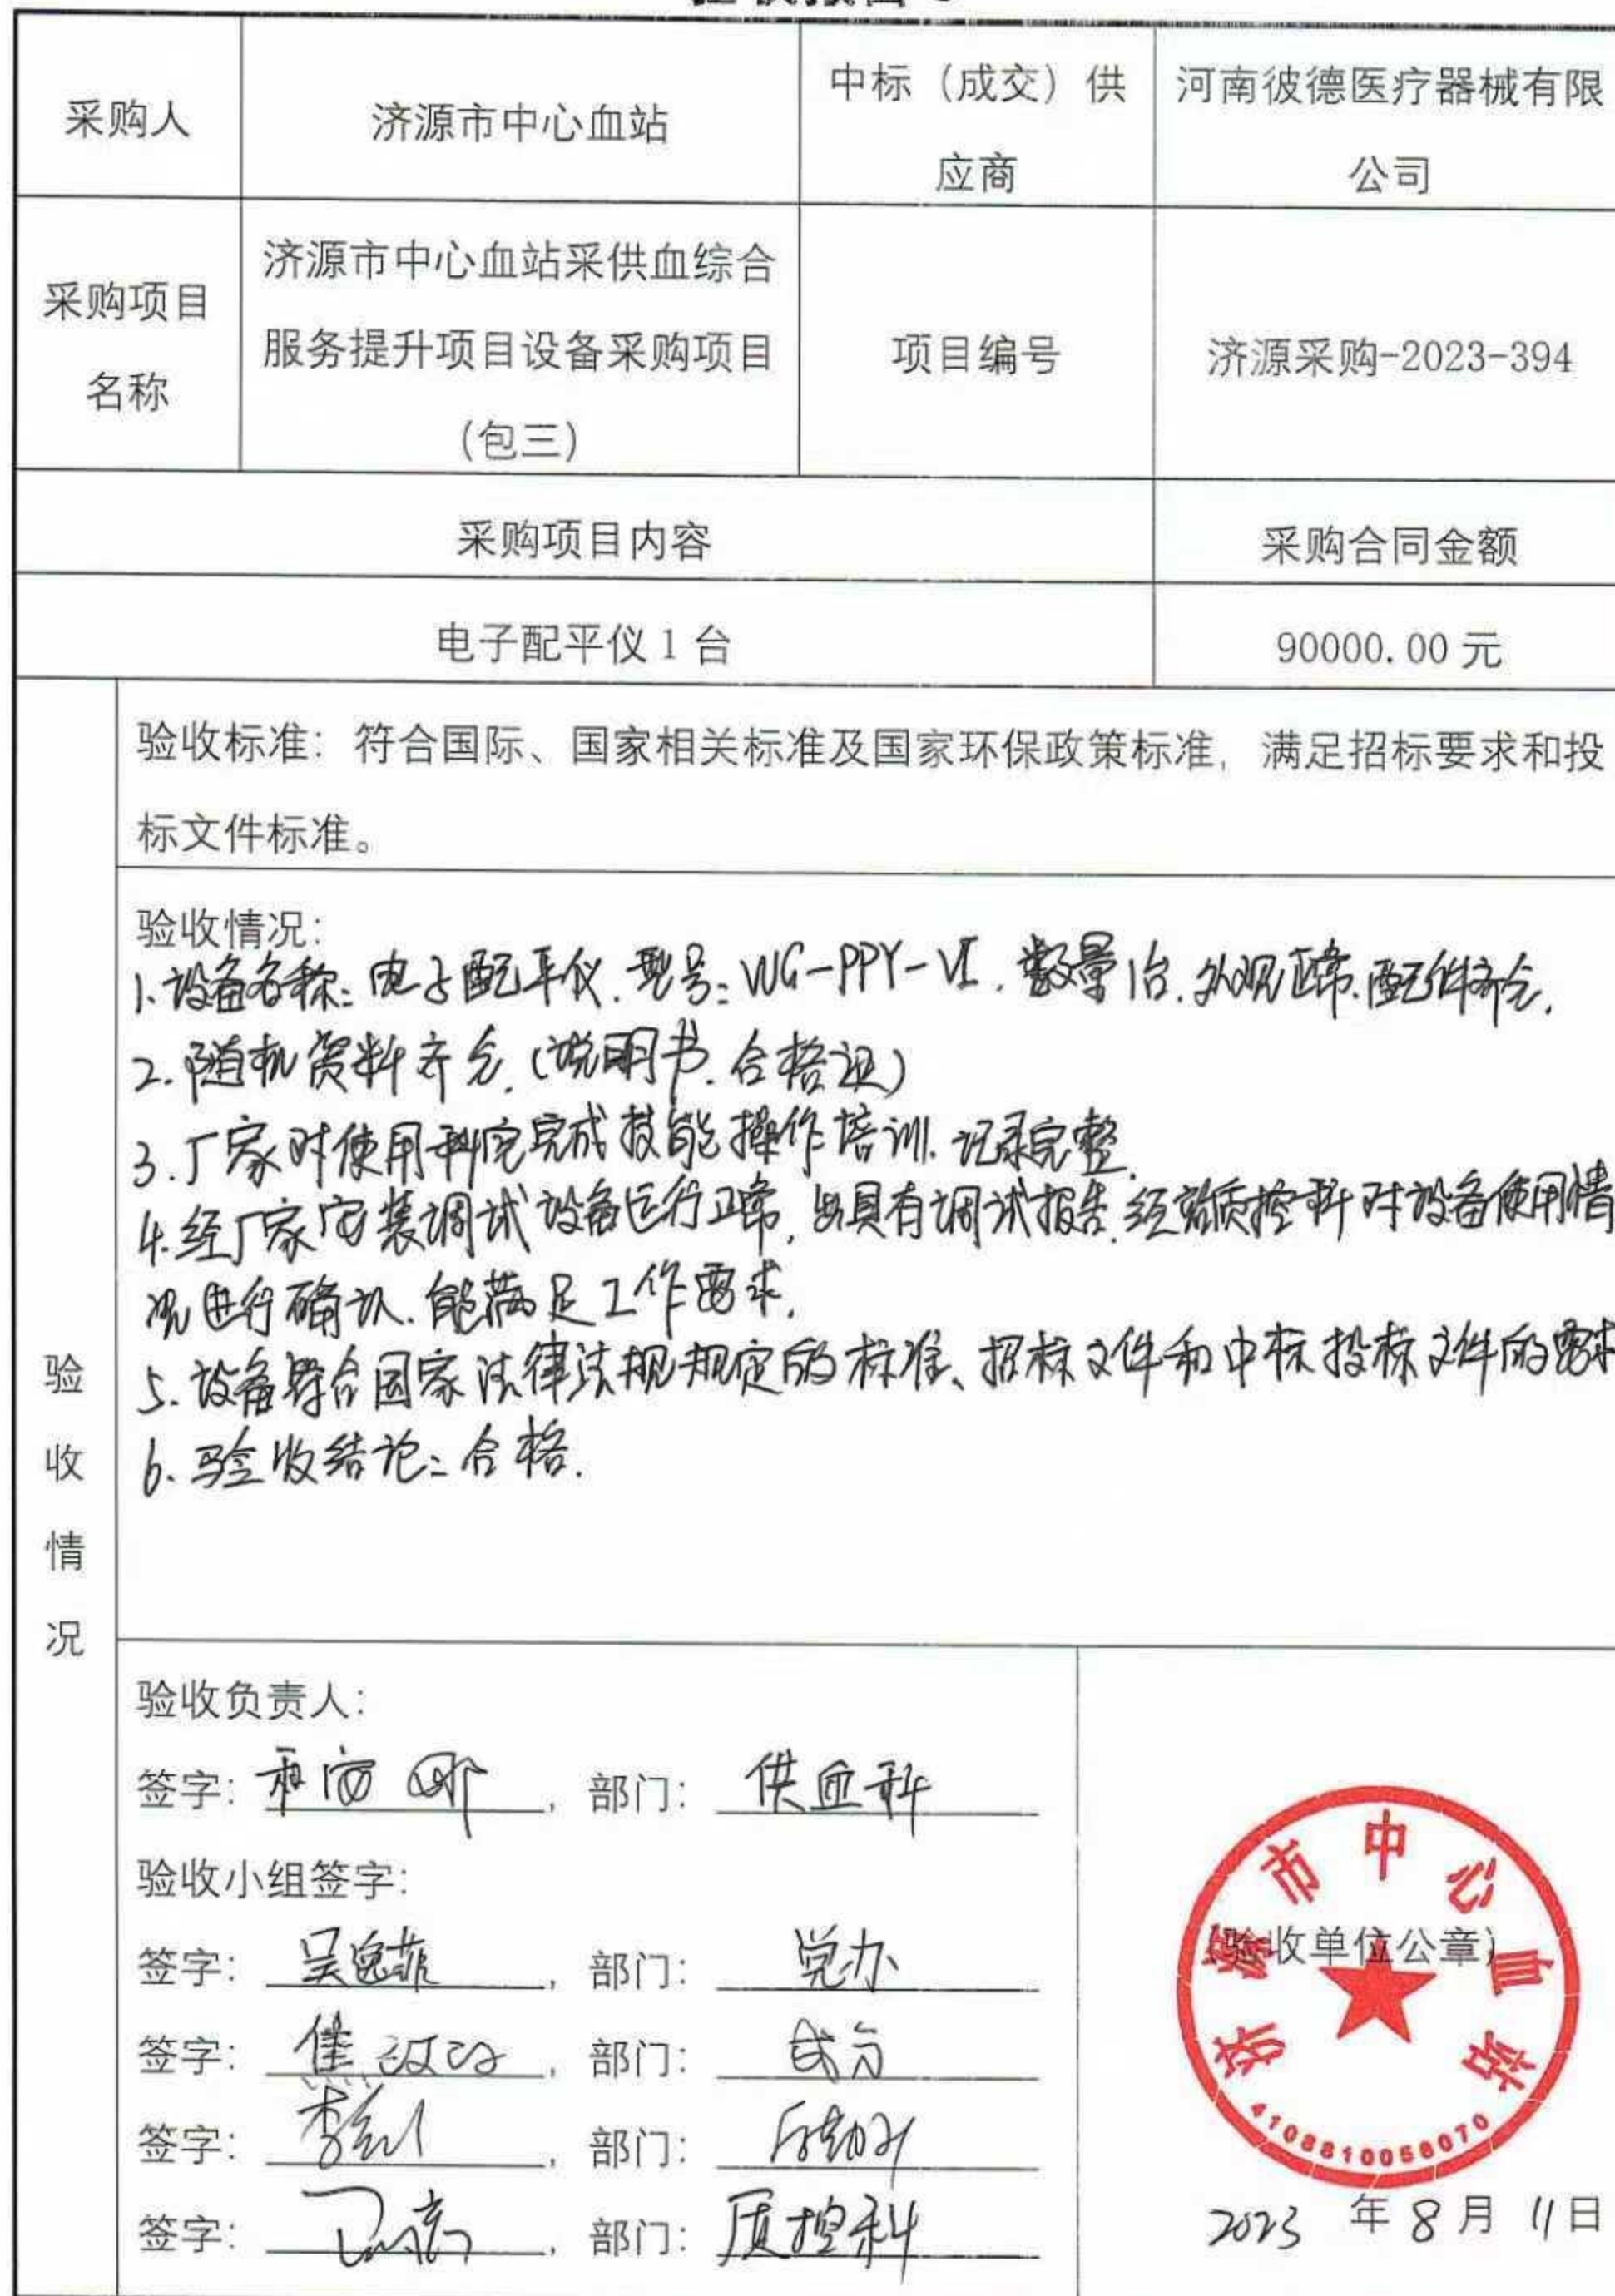 采购人
济源市中心血站
中标（成交）供
应商
河南彼德医疗器械有限
公司
采购项目
名称
济源市中心血站采供血综合
服务提升项目设备采购项目
（包三）
项目编号
济源采购-2023-394
采购项目内容
采购合同金额
电子配平仪 1 台
90000.00 元
验收情况
验收标准：符合国际、国家相关标准及国家环保政策标准，满足招标要求和投
标文件标准。
验收情况：
1.设备名称:电子配平仪.型号:WG-PPY-VI.数量1台.外观正常.配件齐全.
2.随机资料齐全.(说明书.合格证)
3.厂家对使用科室完成技能操作培训.记录完整.
4.经厂家安装调试设备运行正常,出具有调试报告.经站质控科对设备使用情
况进行确认.能满足工作需求.
5.设备符合国家法律法规规定的标准、招标文件和中标投标文件的要求
6.验收结论:合格.
验收负责人：
签字：，部门：供血科
验收小组签字：
签字：，部门：党办
签字：，部门：成分
签字：，部门：
签字：，部门：质控科
济源市中心血站
(验收单位公章)
2023 年 8 月 11 日